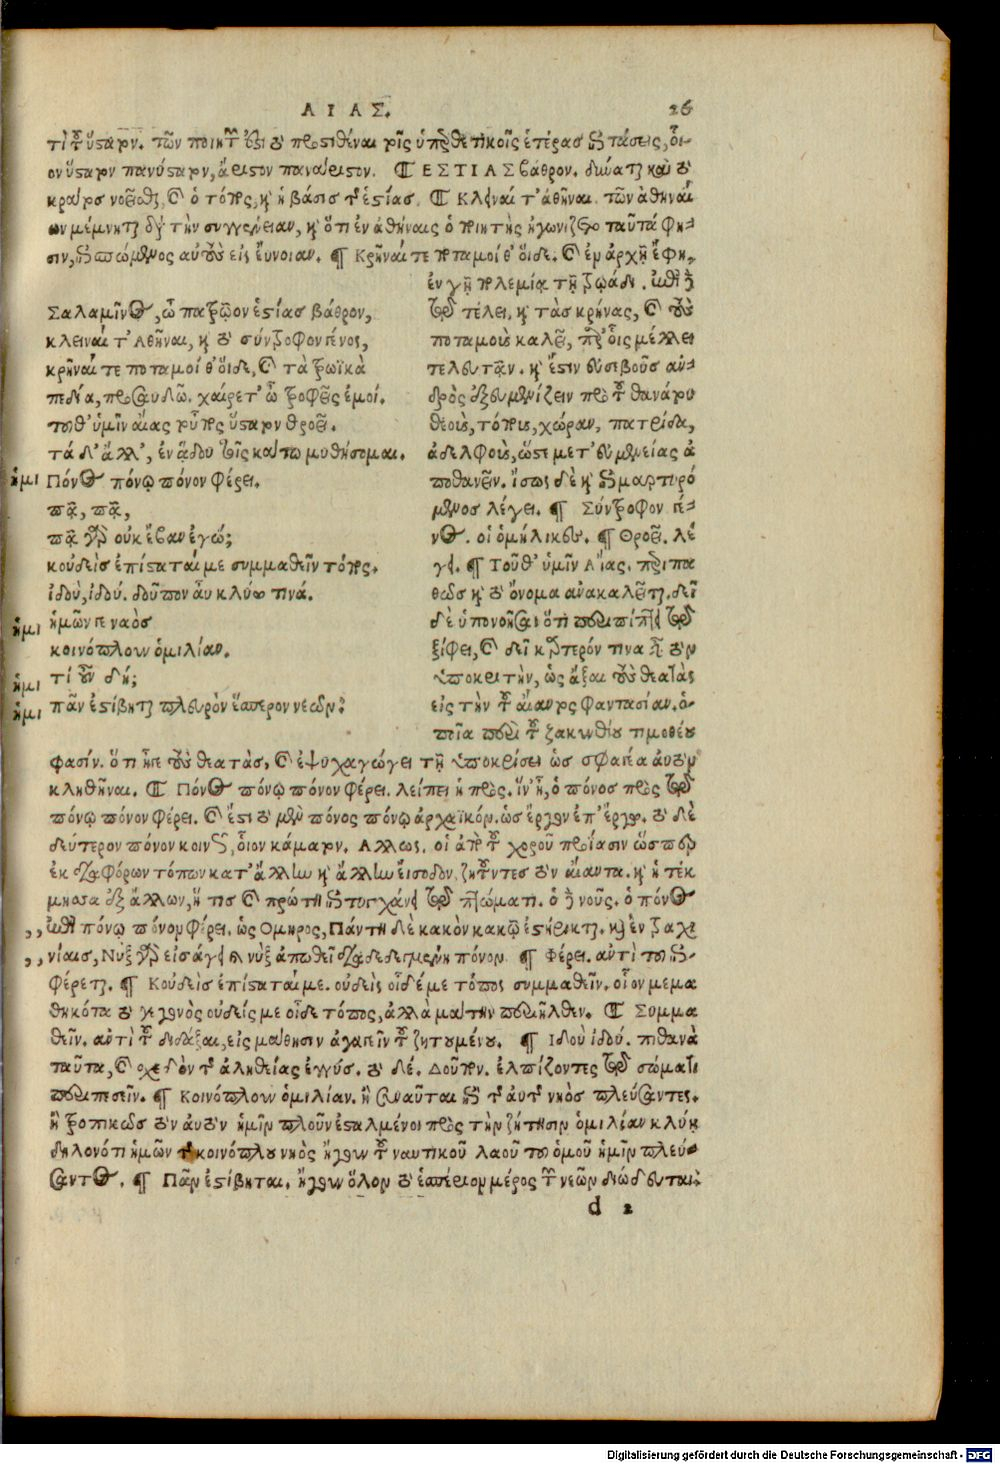 ΑΙΑΣ. 26
τὶ τοῦ ὕστατον. τῶν ποιητῶν ἐστὶ τὸ προστιθέναι τοῖς ὑπερθετικοῖς ἑτέρας ἐπιτάσεις, οἷ-
ον ὕστατον πανύστατον, ἄριστον πανάριστον. ¶ ΕΣΤΙΑΣ βάθρον. δύναται καὶ τὸ
νοεῖσθαι, καὶ ὁ τόπος, καὶ ἡ βάσις τῆς ἑστίας. ¶ Κλειναί τ' ἀθῆναι. τῶν ἀθηναί
ων μέμνηται διὰ τὴν συγγένειαν, καὶ ὅτι ἐν ἀθήναις ὁ ποιητὴς ἠγωνίζετο ταῦτά φη-
σιν, ἐπισπώμενος αὐτοὺς εἰς εὔνοιαν. ¶ Κρῆναί τε ποταμοί θ' οἵδε. καὶ ἐν ἀρχῇ ἔφη,
ἐν γῇ πολεμίᾳ τῇ τρῳάδι. ἐπὶ δὲ
Σαλαμῖνος, ὦ πατρῷον ἑστίας βάθρον,
κλειναί τ' Αθῆναι, καὶ τὸ σύντροφον γένος,
κρῆναί τε ποταμοί θ' οἵδε, καὶ τὰ τρωϊκὰ
πεδία, προσαυδῶ. χαίρετ' ὦ τροφεῖς ἐμοί.
τοῦθ' ὑμῖν αἴας τοὖπος ὕστατον θροεῖ.
τά δ' ἄλλ', ἐν ᾅδου τοῖς κάτω μυθήσομαι.
ἡμι Πόνος πόνῳ πόνον φέρει.
πᾷ, πᾷ,
πᾷ γὰρ οὐκ ἔβαν ἐγώ;
κοὐδεὶς ἐπίσταταί με συμμαθεῖν τόπος.
ἰδοὺ, ἰδού. δοῦπον αὖ κλύω τινά.
ἡμι ἡμῶν γε ναὸς
κοινόπλουν ὁμιλίαν.
ἡμι τί οὖν δή;
ἡμι πᾶν ἐστίβηται πλευρὸν ἕσπερον νεῶν;
τῷ τέλει, καὶ τὰς κρήνας, καὶ τοὺς
ποταμοὺς καλεῖ, παρ' οἷς μέλλει
τελευτᾶν. καὶ ἔστιν εὐσεβοῦς ἀν-
δρὸς ἐξευμενίζειν πρὸ τοῦ θανάτου
θεοὺς, τόπους, χώραν, πατρίδα,
ἀδελφοὺς, ὥστε μετ' εὐμενείας ἀ
ποθανεῖν. ἴσως δὲ καὶ ἐπιμαρτυρό
μενος λέγει. ¶ Σύντροφον γέ-
νος. οἱ ὁμήλικες. ¶ Θροεῖ. λέ
γει. ¶ Τοῦθ' ὑμῖν Αἴας. περιπα
θῶς καὶ τὸ ὄνομα ἀνακαλεῖται. δεῖ
δὲ ὑπονοῆσαι ὅτι περιπίπτει τῷ
ξίφει, καὶ δεῖ καρτερόν τινα εἶναι τὸν
ὑποκριτὴν, ὡς ἄξαι τοὺς θεατὰς
εἰς τὴν τοῦ αἴαντος φαντασίαν. ὁ-
ποῖα περὶ τοῦ ζακυνθίου τιμοθέου
φασίν. ὅτι ἦγε τοὺς θεατὰς, καὶ ἐψυχαγώγει τῇ ὑποκρίσει ὡς σφαγέα αὐτὸν
κληθῆναι. ¶ Πόνος πόνῳ πόνον φέρει. λείπει ἡ πρός. ἵν' ᾖ, ὁ πόνος πρὸς τῷ
πόνῳ πόνον φέρει. καὶ ἔστι τὸ μὲν πόνος πόνῳ ἀρχαϊκόν. ὡς ἔργον ἐπ' ἔργῳ. τὸ δὲ
δεύτερον πόνον κοινὸν, οἷον κάματον. Αλλως. οἱ ἀπὸ τοῦ χοροῦ προΐασιν ὥσπερ
ἐκ διαφόρων τόπων κατ' ἄλλην καὶ ἄλλην εἴσοδον, ζητοῦντες τὸν αἴαντα. καὶ ἡ τέκ
μησσα ἐξ ἄλλων, ἥ τις καὶ πρώτη ἐπιτυγχάνει τῷ πτώματι. ὁ δὲ νοῦς. ὁ πόνος
,, ἐπὶ πόνῳ πόνον φέρει. ὡς Ομηρος, Πάντη δὲ κακὸν κακῷ ἐστήρικται. καὶ ἐν τραχι
,, νίαις, Νὺξ γὰρ εἰσάγει καὶ νὺξ ἀπωθεῖ διαδεδεγμένη πόνον. ¶ Φέρει. ἀντὶ τοῦ ἐπι-
φέρεται. ¶ Κοὐδεὶς ἐπίσταταί με. οὐδεὶς οἶδέ με τόπος συμμαθεῖν. οἷον μεμα
θηκότα τὸ γεγονὸς οὐδείς με οἶδε τόπος, ἀλλὰ μάτην περιῆλθεν. ¶ Συμμα
θεῖν. ἀντὶ τοῦ διδάξαι, εἰς μάθησιν ἀγαγεῖν τοῦ ζητουμένου. ¶ Ιδοὺ ἰδού. πιθανὰ
ταῦτα, καὶ σχεδὸν τῆς ἀληθείας ἐγγύς. τὸ δέ. Δοῦπον. ἐλπίζοντες τῷ στόματι
περιπεσεῖν. ¶ Κοινόπλουν ὁμιλίαν. ἢ συναῦται ἐπὶ τῆς αὐτῆς νηὸς πλεύσαντες.
ἢ τροπικῶς τὸν αὐτὸν ἡμῖν πλοῦν ἐσταλμένοι πρὸς τὴν ζήτησιν ὁμιλίαν κλύει
δηλονότι ἡμῶν τῆς κοινόπλου νηὸς ἤγουν τοῦ ναυτικοῦ λαοῦ τοῦ ὁμοῦ ἡμῖν πλεύ-
σαντος. ¶ Πᾶν ἐστίβηται. ἤγουν ὅλον τὸ ἑσπέριον μέρος τῶν νεῶν διώδευται.
d 2
Digitalisierung gefördert durch die Deutsche Forschungsgemeinschaft - DFG